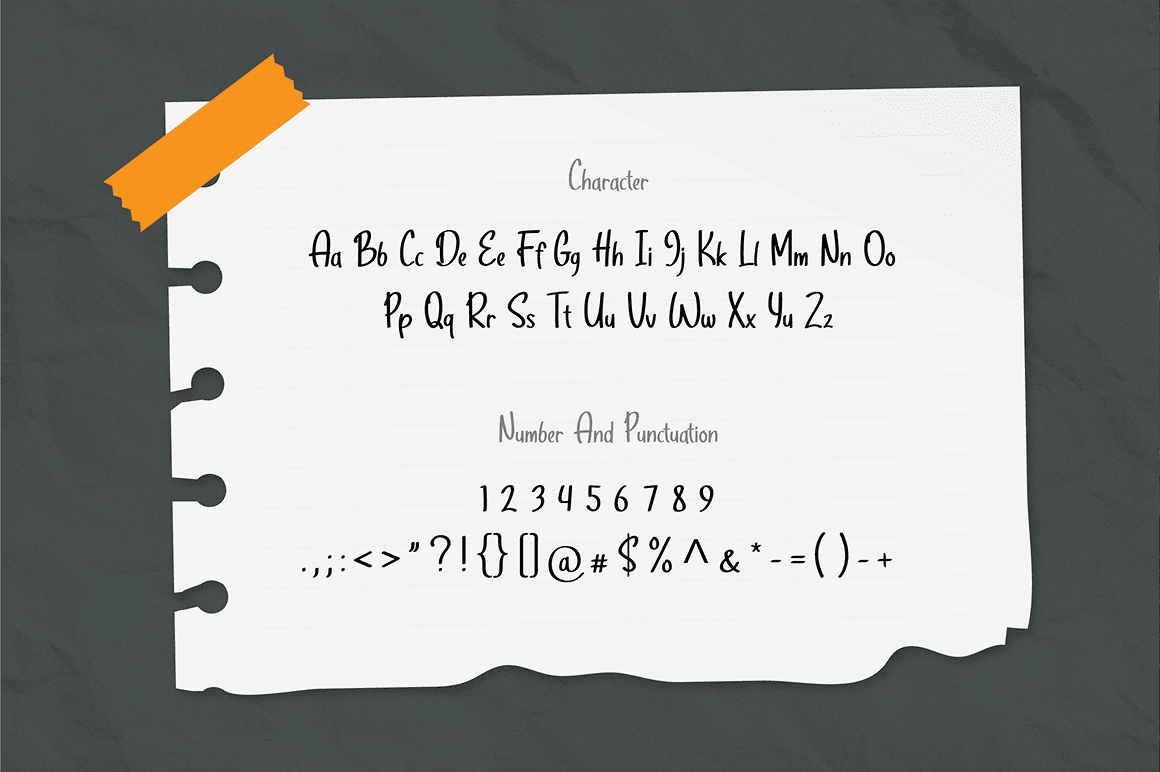 Character
Aa Bb Cc Dd Ee Ff Gg Hh Ii Jj Kk Ll Mm Nn Oo
Pp Qq Rr Ss Tt Uu Vv Ww Xx Yy Zz
Number And Punctuation
1 2 3 4 5 6 7 8 9
. , ; : < > " ? ! { } [ ] @ # $ % ^ & * - = ( ) - +